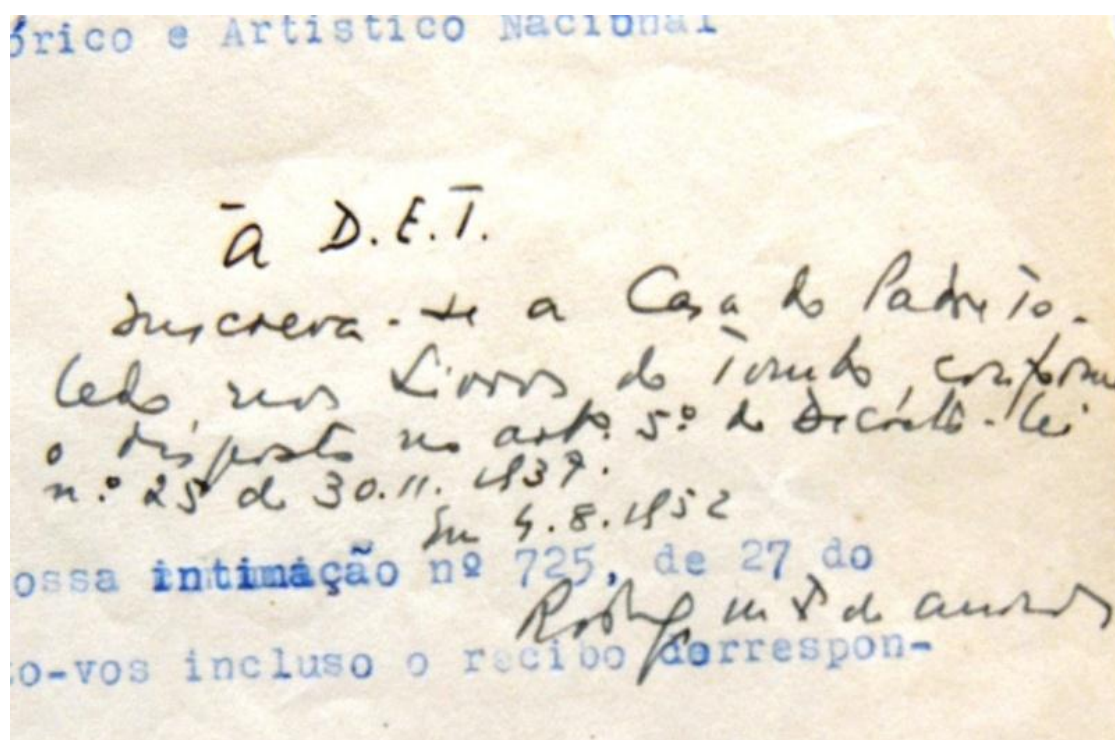 órico e Artístico Nacional
À D.E.T.
Inscreva-se a Casa do Padre To-
ledo, nos Livros do Tombo, conforme
o disposto no artº. 5º do Decreto-lei
n.º 25 de 30.11.1937.
Em 4.8.1952
ossa intimação nº 725, de 27 do
Rodrigo M F de Andrade
o-vos incluso o recibo correspon-